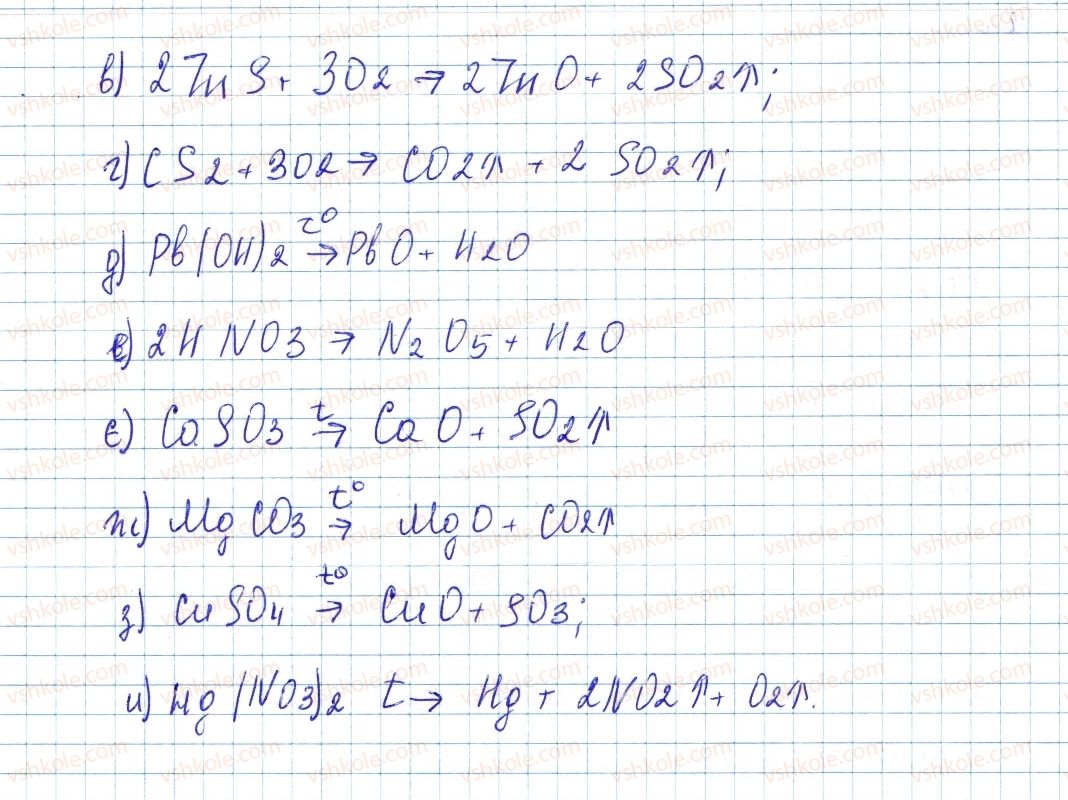 в) 2ZnS + 3O2 → 2ZnO + 2SO2↑;
г) CS2 + 3O2 → CO2↑ + 2SO2↑;
д) Pb(OH)2 t° → PbO + H2O
е) 2HNO3 → N2O5 + H2O
є) CaSO3 t → CaO + SO2↑
ж) MgCO3 t° → MgO + CO2↑
з) CuSO4 t° → CuO + SO3;
и) Hg(NO3)2 t → Hg + 2NO2↑ + O2↑.
vshkole.com